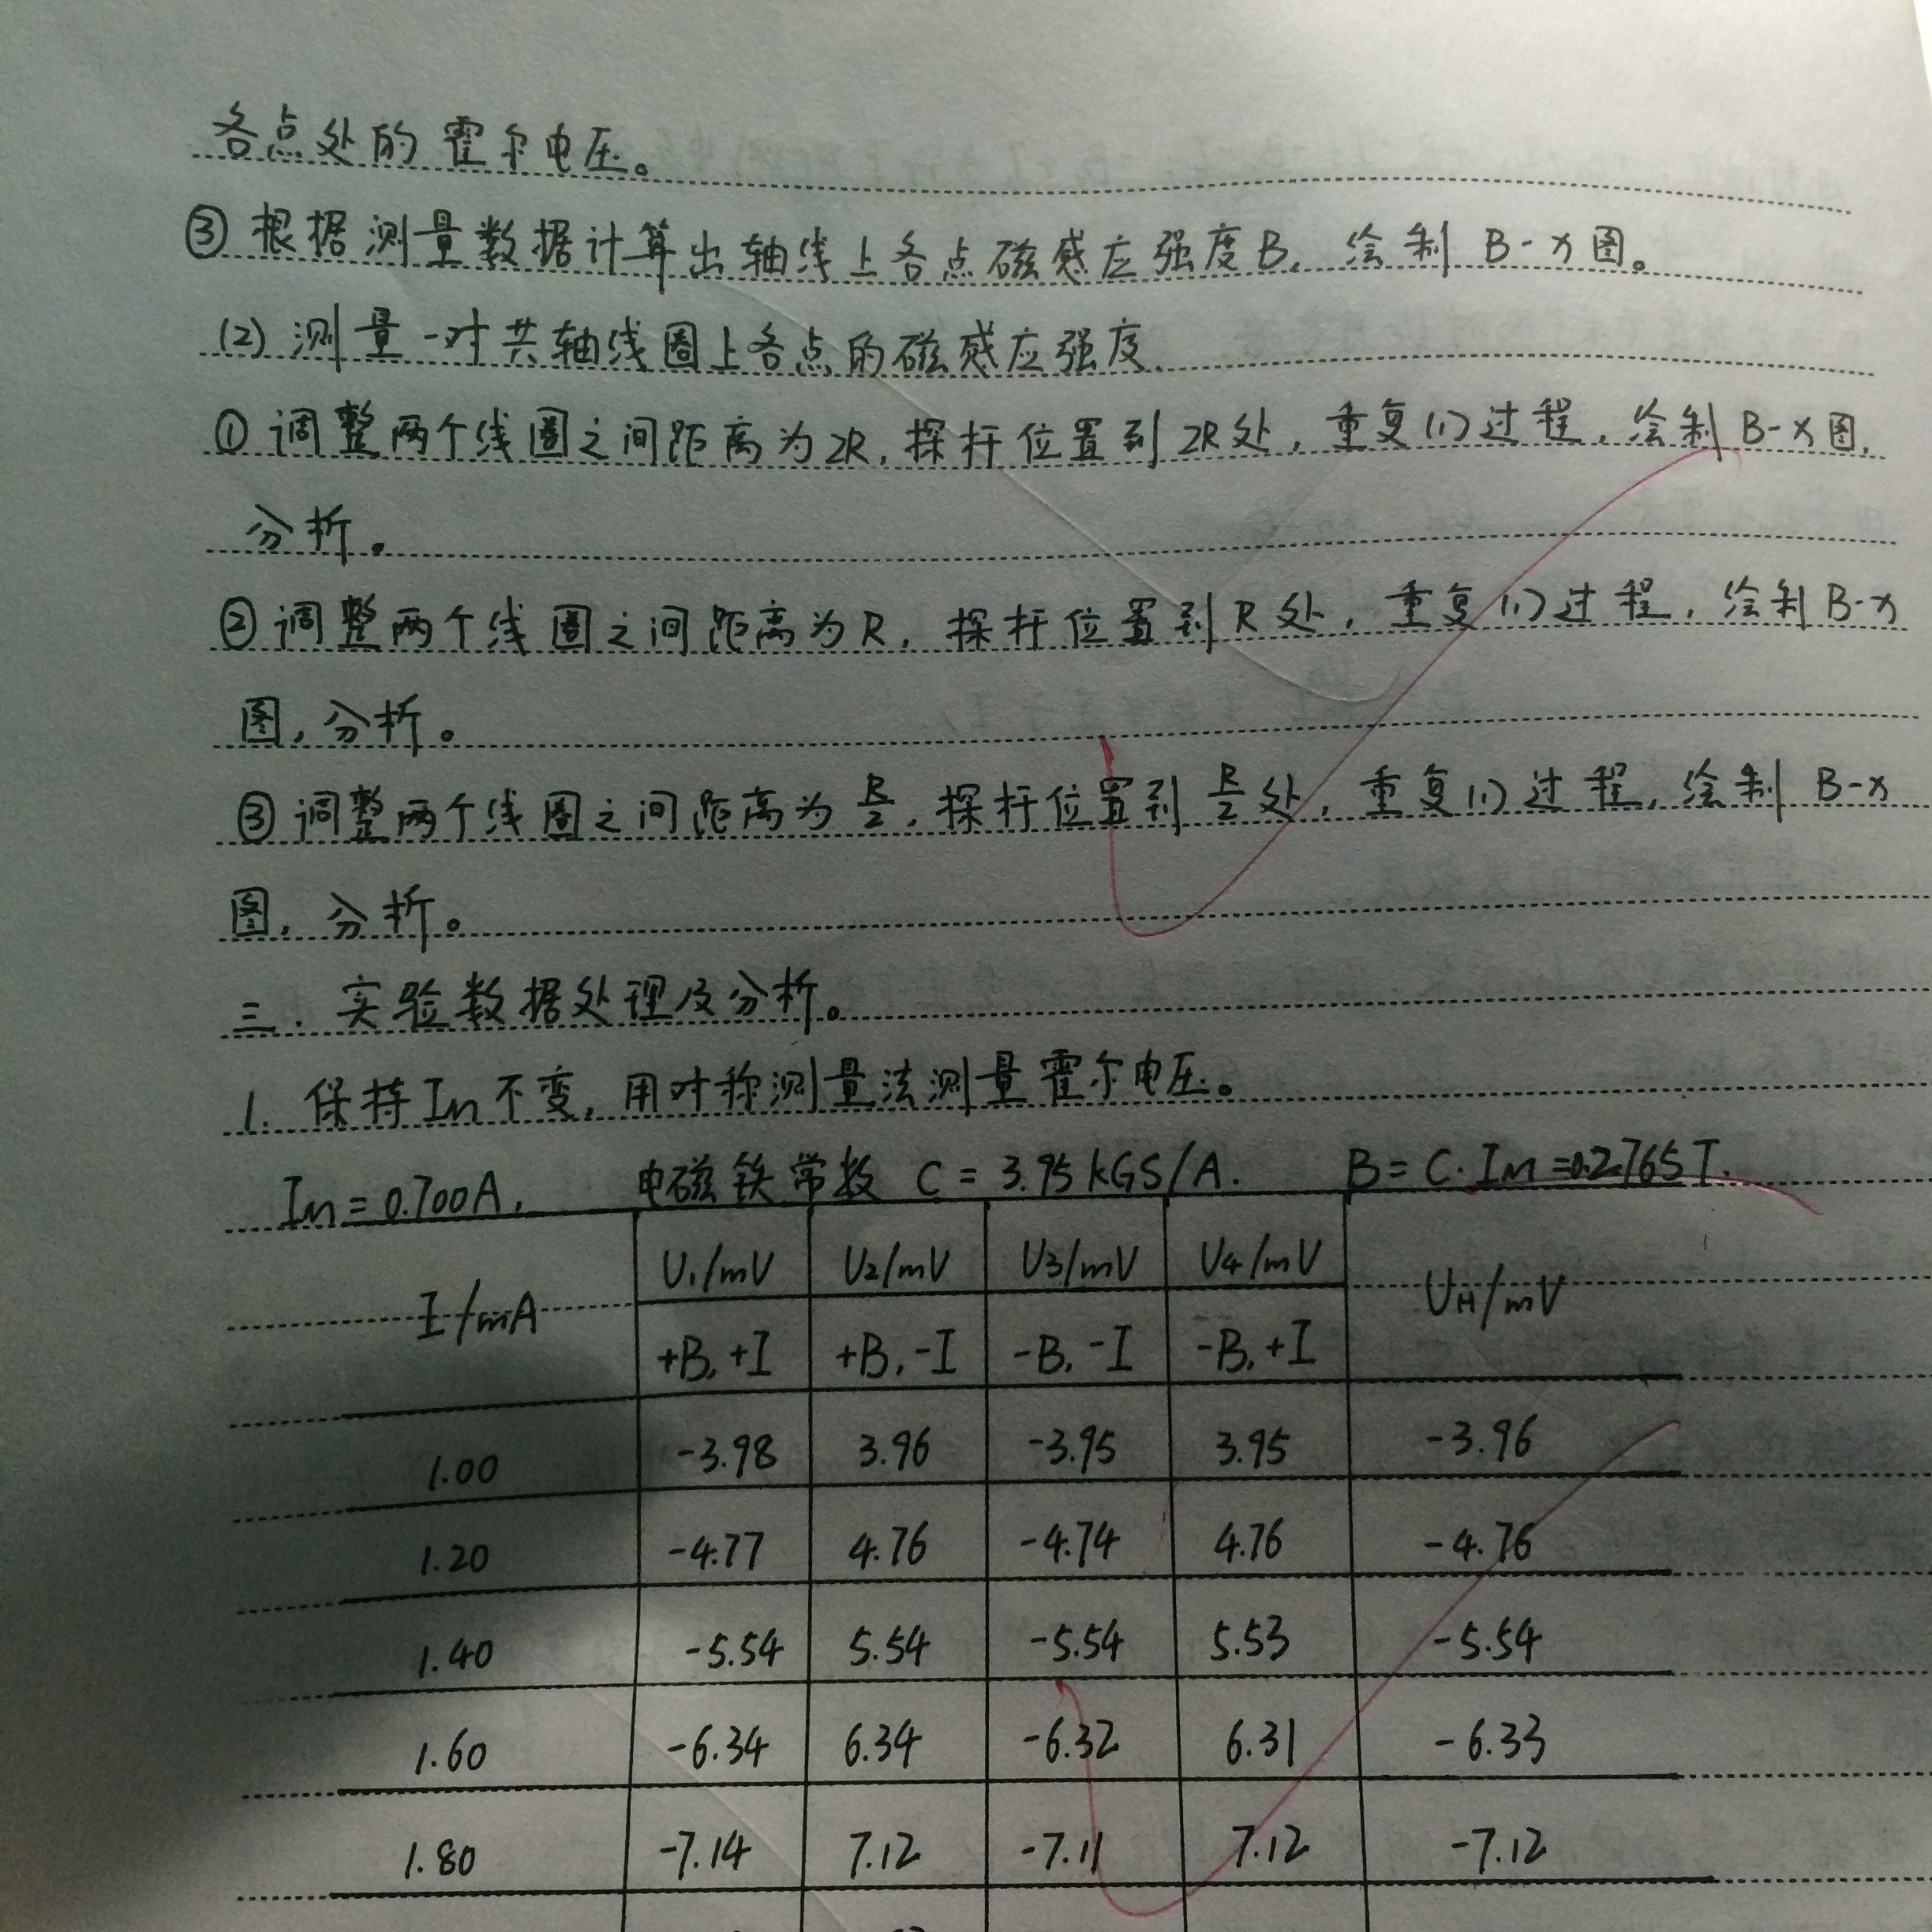 各点处的霍尔电压。
③根据测量数据计算出轴线上各点磁感应强度B,绘制B-x图。
(2)测量一对共轴线圈上各点的磁感应强度.
①调整两个线圈之间距离为2R,探杆位置到2R处,重复(1)过程,绘制B-x图,
分析。
②调整两个线圈之间距离为R,探杆位置到R处,重复(1)过程,绘制B-x
图,分析。
③调整两个线圈之间距离为R/2,探杆位置到R/2处,重复(1)过程,绘制B-x
图,分析。
三.实验数据处理及分析。
1.保持Im不变,用对称测量法测量霍尔电压。
Im=0.700A, 电磁铁常数 C=3.95kGS/A. B=C·Im=0.2765T.
I/mA U1/mV U2/mV U3/mV U4/mV UH/mV
+B,+I +B,-I -B,-I -B,+I
1.00 -3.98 3.96 -3.95 3.95 -3.96
1.20 -4.77 4.76 -4.74 4.76 -4.76
1.40 -5.54 5.54 -5.54 5.53 -5.54
1.60 -6.34 6.34 -6.32 6.31 -6.33
1.80 -7.14 7.12 -7.11 7.12 -7.12